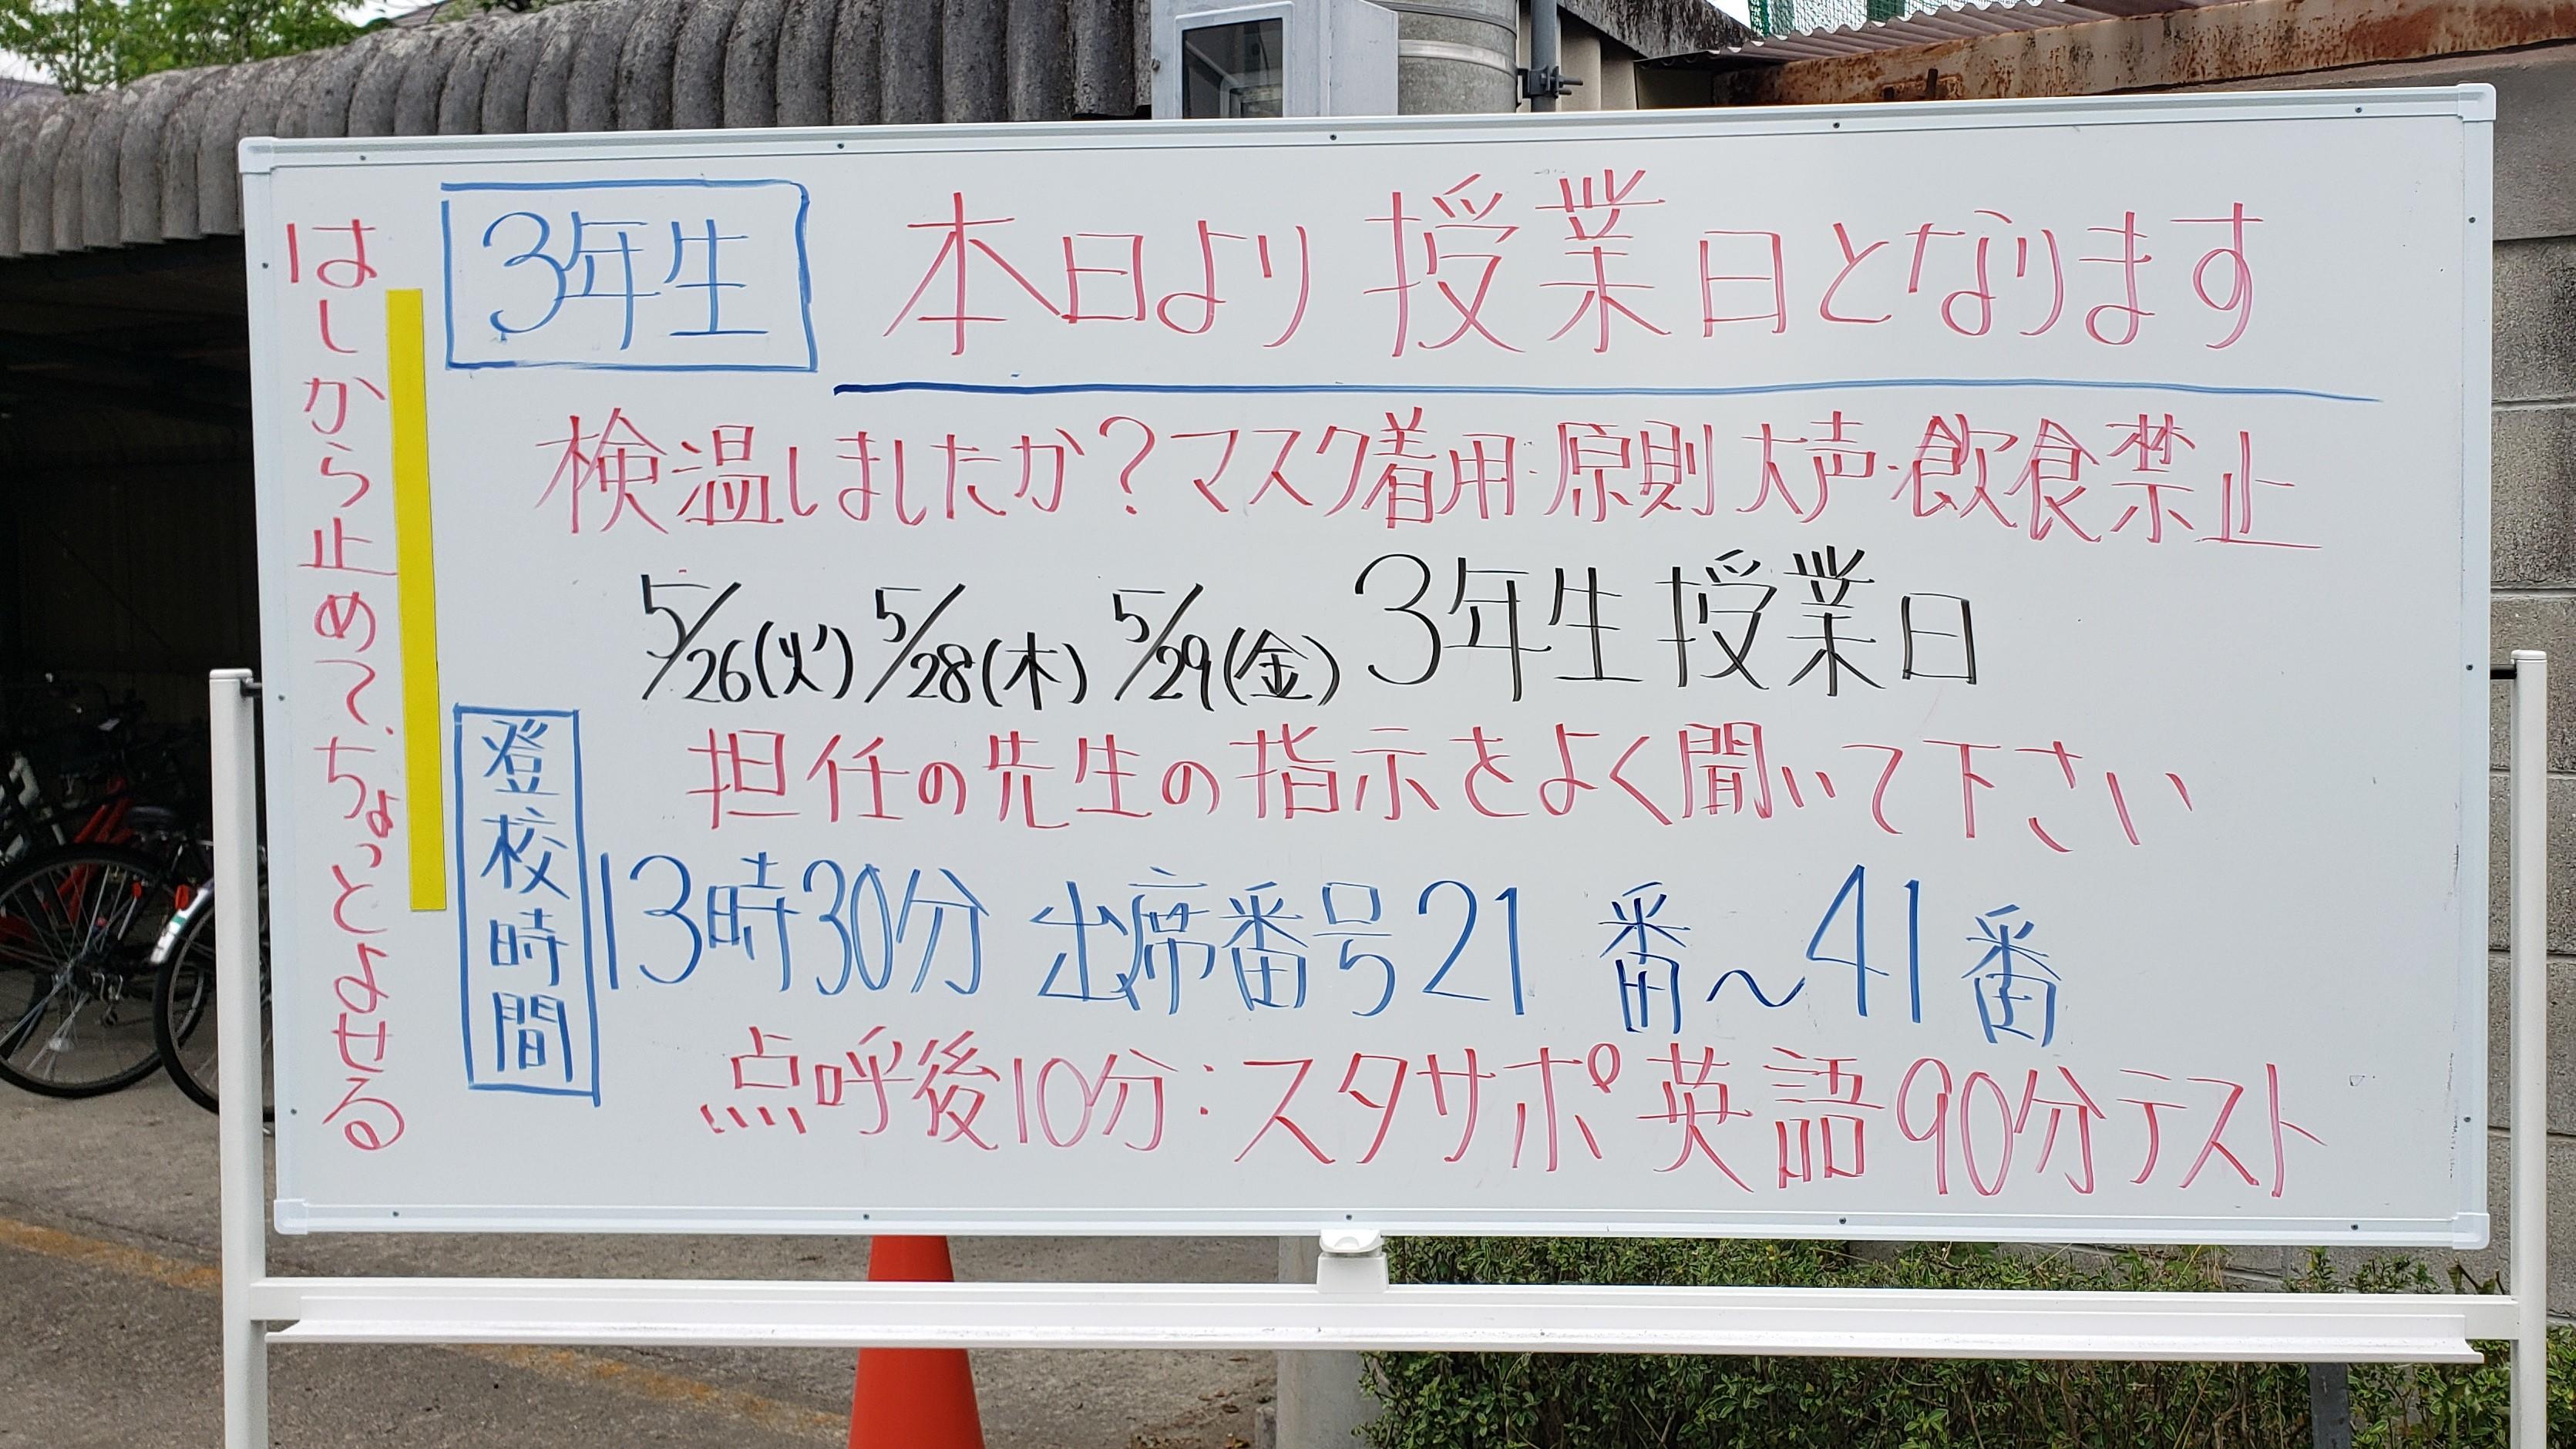 3年生 本日より授業日となります
検温しましたか?マスク着用・原則大声・飲食禁止
5/26(火) 5/28(木) 5/29(金) 3年生授業日
担任の先生の指示をよく聞いて下さい
登校時間
13時30分 出席番号21番~41番
点呼後10分:スタサポ英語90分テスト
はしから止めて、ちょっとよせる